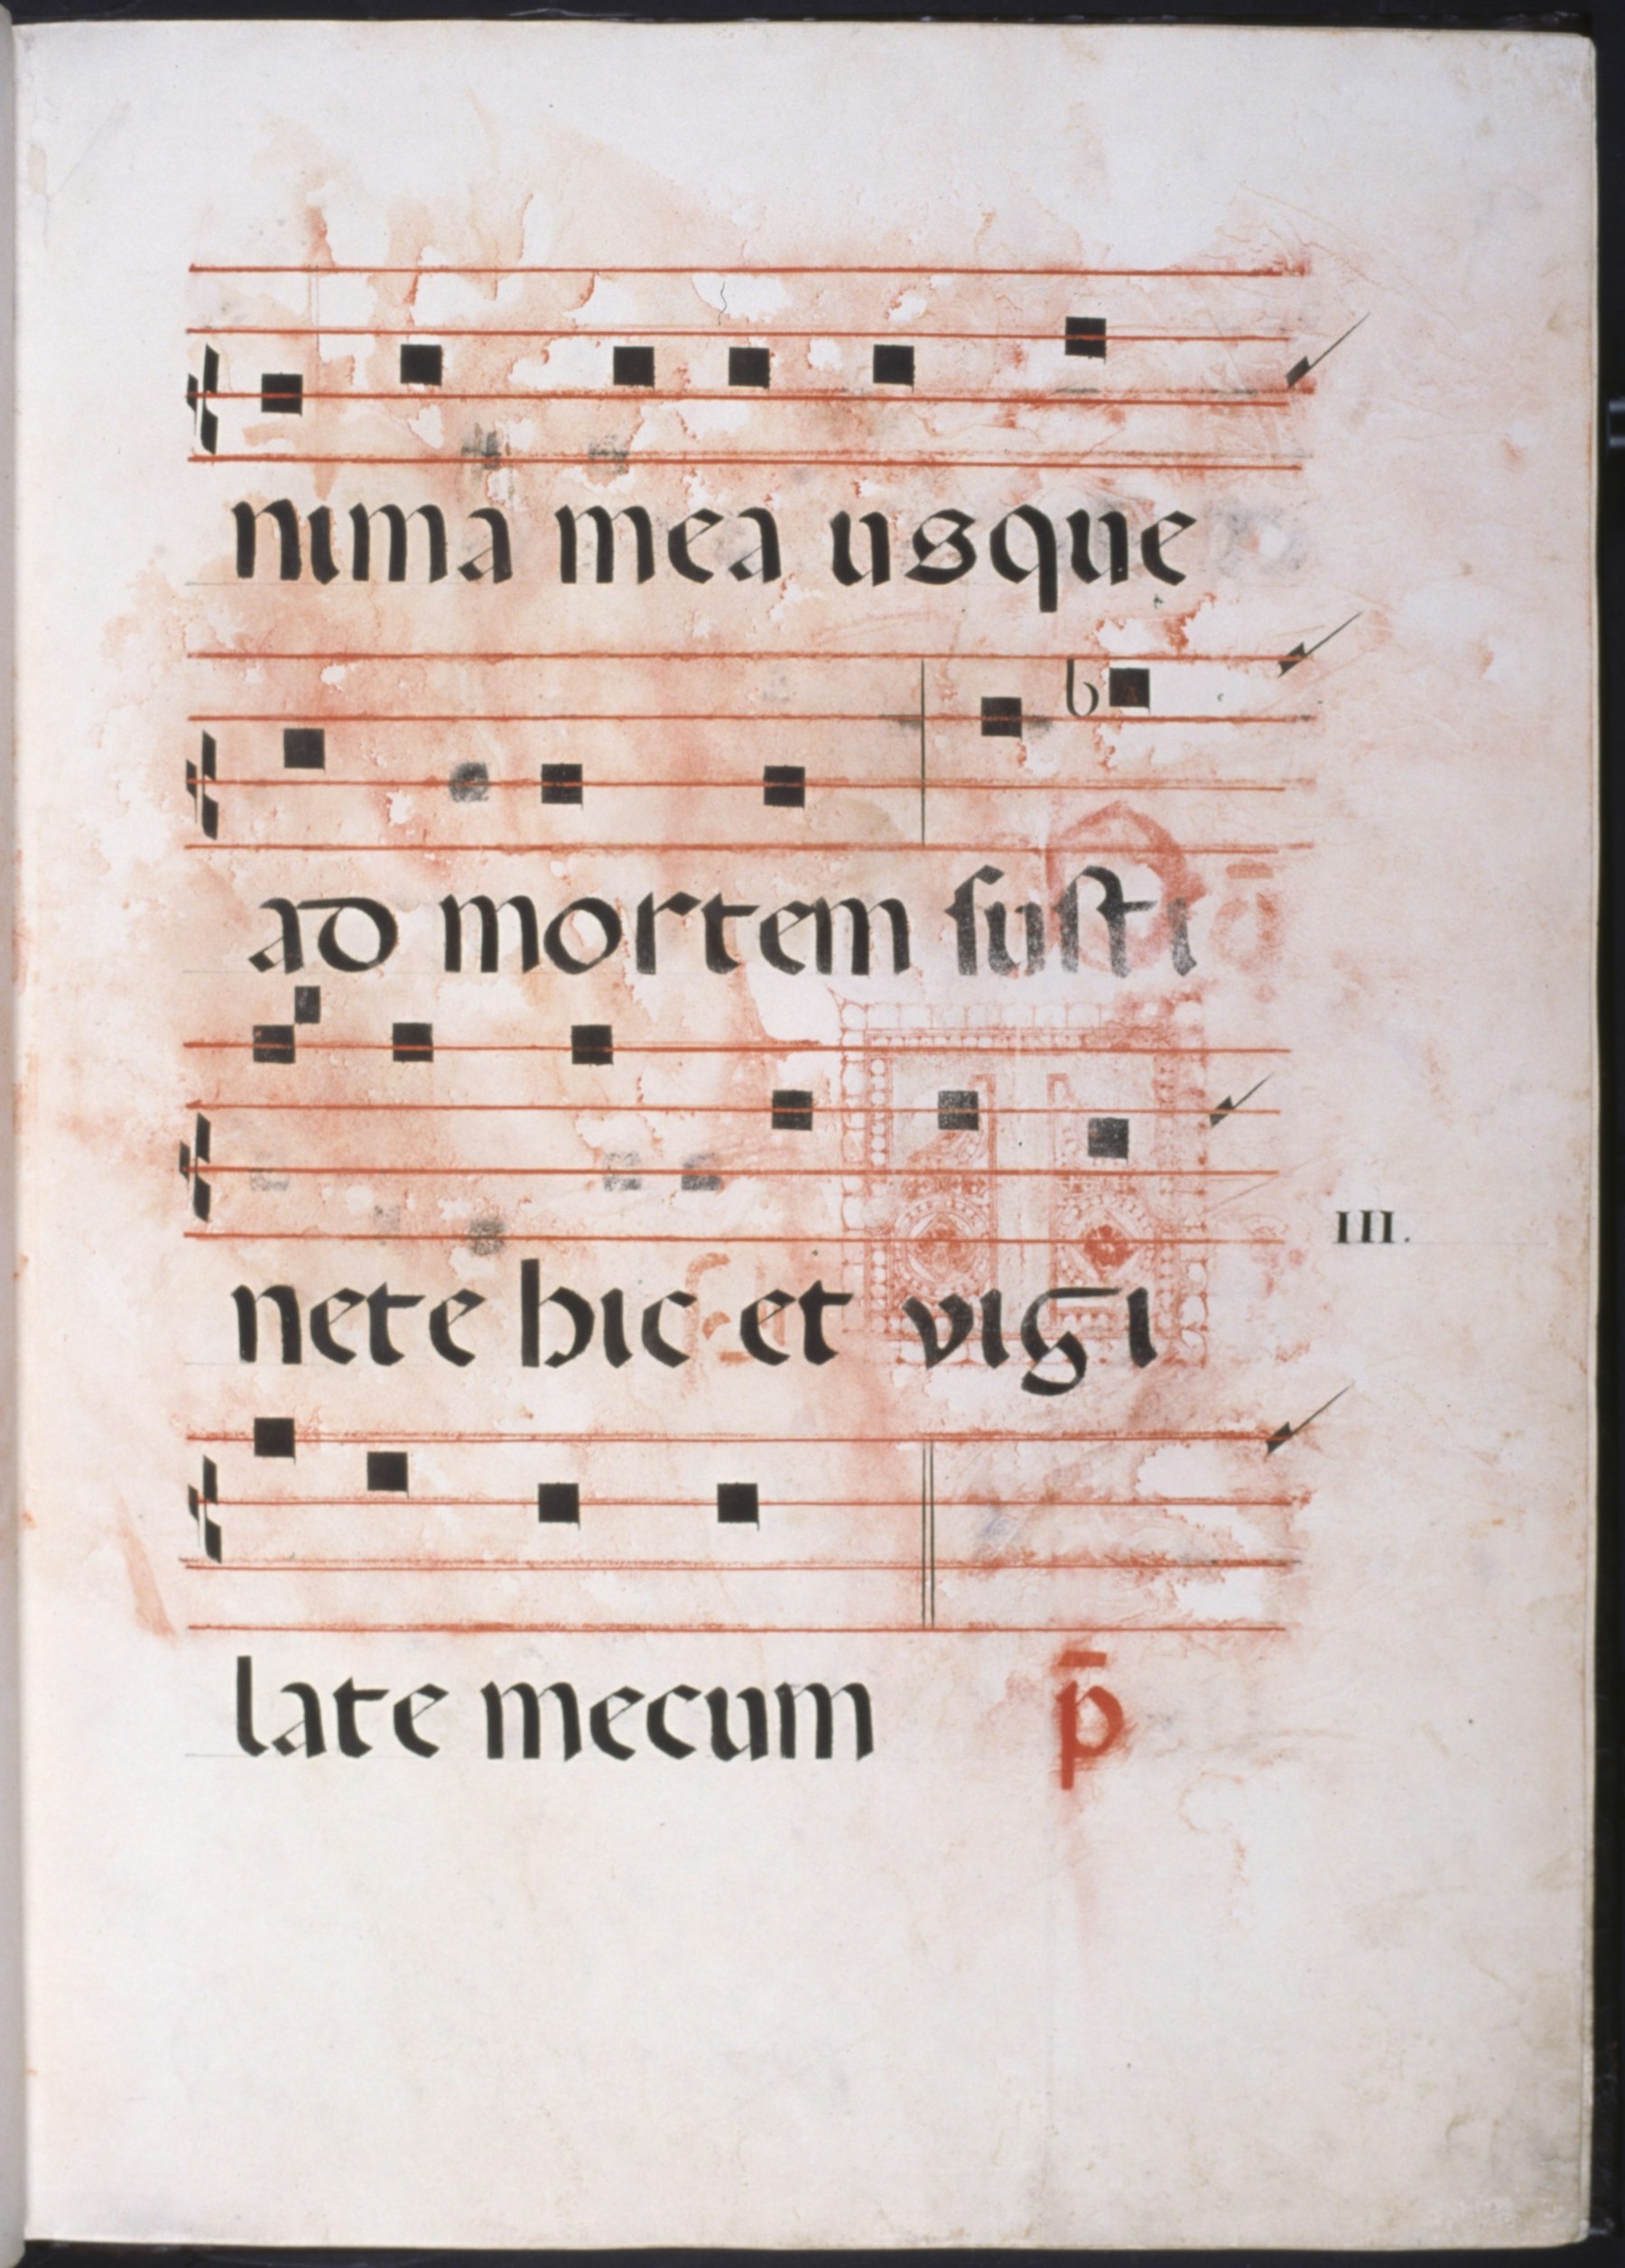 nima mea usque
ad mortem susti
nete hic et vigi
III.
late mecum p̄